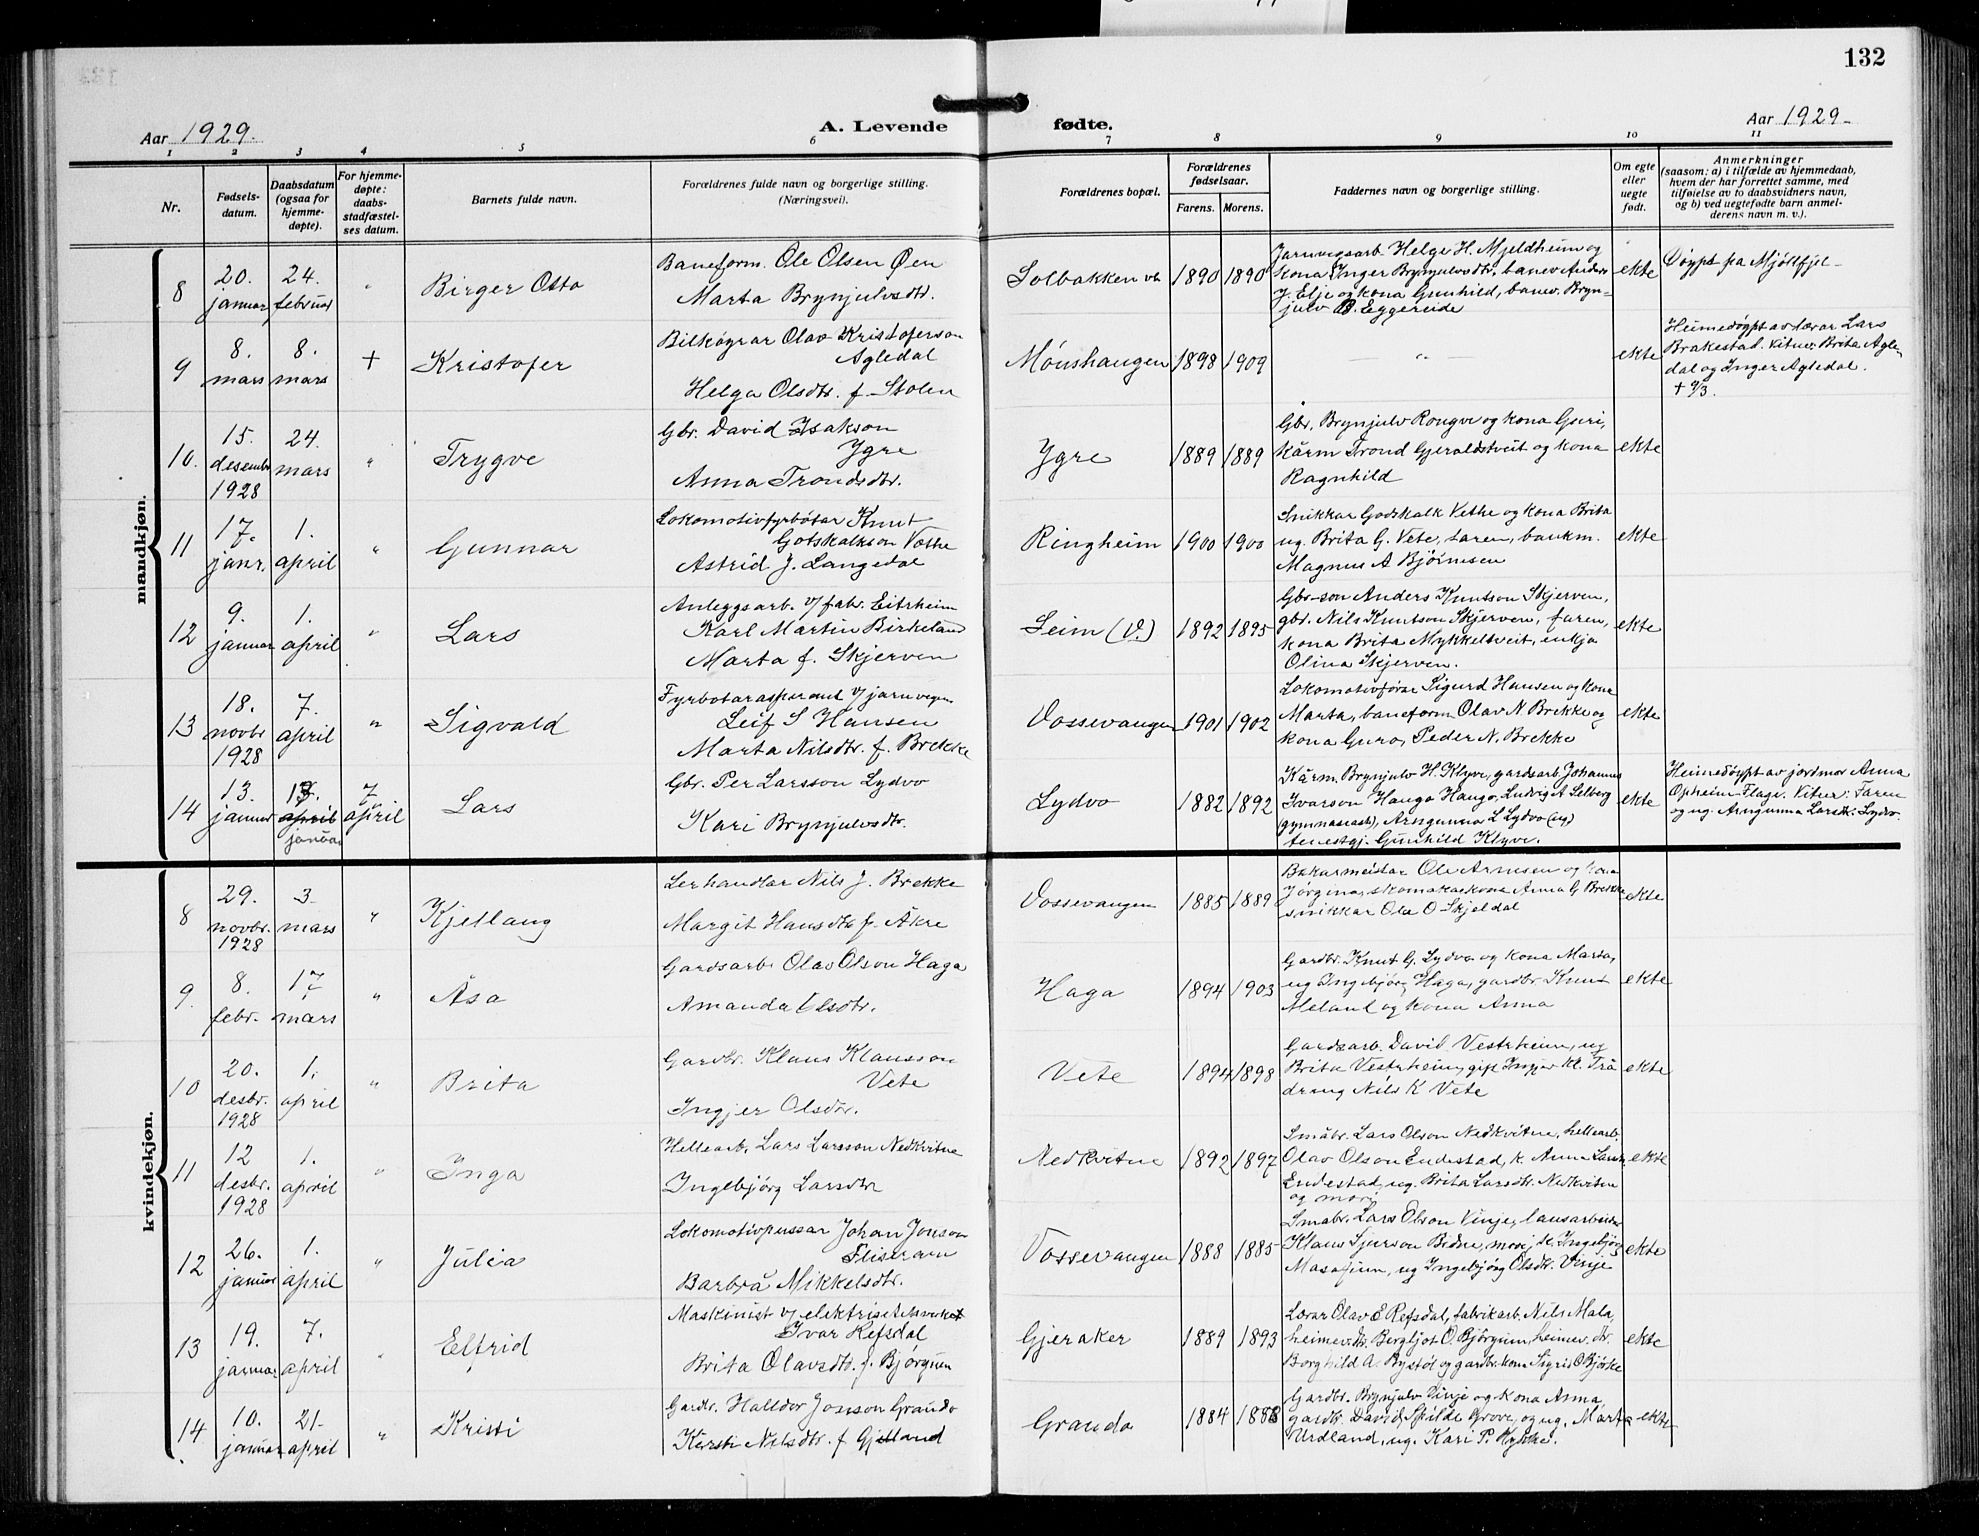 132
Aar 1929. A. Levende fødte. Aar 1929.
1 2 3 4 5 6 7 8 9 10 11
Nr.
Fødsels-
datum.
Daabsdatum
(ogsaa for
hjemme-
døpte).
For hjemme-
døpte:
daabs-
stadfæstel-
ses datum.
Barnets fulde navn.
Forældrenes fulde navn og borgerlige stilling.
(Næringsvei).
Forældrenes bopæl.
Forældrenes
fødselsaar.
Farens. Morens.
Faddernes navn og borgerlige stilling.
Om egte
eller
uegte
født.
Anmerkninger
(saasom: a) i tilfælde av hjemmedaab,
hvem der har forrettet samme, med
tilføielse av to daabsvidners navn,
og b) ved uegtefødte barn anmel-
derens navn m. v.).
mandkjøn.
8
20.
januar
24.
februar
"
Birger Otto
Baneform. Ole Olsen Øen
Marta Brynjulvsdtr.
Solbakken
1890 1890
Jarnvegsarb. Helge H. Mjeldheim og
kona Inger Brynjulvsdtr, banev. Anders
J. Elje og kona Gunhild, banev. Bryn-
julv B. Eggereide
ekte
Døypt pa Mjöllfjel-
9
8.
mars
8.
mars
+
Kristofer
Bilkøyrar Olav Kristoferson
Agledal
Helga Olsdtr. f. Stolen
Mønshaugen
1898 1909
— " —
ekte
Heimedøypt av lærar Lars
Brakestad. Vitner Brita Agle-
dal og Inger Agledal.
+ 9/3.
10.
15.
desembr
1928
24.
mars
"
Trygve
Gbr. David Isakson
Ygre
Anna Trondsdtr.
Ygre
1889 1889
Gbr. Brynjulv Rongve og kona Gyri,
Kårm Trond Gjeraldstveit og kona
Ragnhild
ekte
11
17.
janr.
1.
april
"
Gunnar
Lokomotivfyrbøtar Knut
Gotskalkson Vethe
Astrid J. Langedal
Ringheim
1900 1900
Snikkar Godskalk Vethe og kona Brita
ug. Brita G. Vete, faren, bankm.
Magnus A Bjørnsen
ekte
12
9.
januar
1.
april
"
Lars
Anleggsarb. v/ fabr. Eitrheim
Karl Martin Birkeland
Marta f. Skjerven
Seim (V.)
1892 1895
Gbr-son Anders Knutson Skjerven,
gbr. Nils Knutson Skjerven, faren,
kona Brita Mykkeltveit, enkja
Olina Skjerven.
ekte
13
18.
novbr
1928
7.
april
"
Sigvald
Fyrbotaraspirant v/ jarnvegen
Leif S Hansen
Marta Nilsdtr. f. Brekke
Vossevangen
1901 1902
Lokomotivførar Sigurd Hansen og kona
Marta, baneform Olav N. Brekke og
kona Guro, Peder N. Brekke
ekte
14
13.
januar
13.
april
januar
7
april
Lars
Gbr. Per Larsson Lydvo
Kari Brynjulvsdtr.
Lydvo
1882 1892
Kårm. Brynjulv H. Klyve, gardsarb. Johannes
Ivarson Hauga Haugo, Ludvig A Selberg
gymnasiast), Arngunna L Lydvo (ug)
tenestgj. Gunhild Klyve.
ekte
Heimedøypt av jordmor Anna
Opheim Flage. Vitner: Faren
og ug. Arngunna Larsdtr. Lydvo.
kvindekjøn.
8
29.
novbr.
1928
3
mars
"
Kjellaug
Lerhandlar Nils J. Brekke
Margit Hansdtr f. Åkre
Vossevangen
1885 1889
Bakarmeistar Ole Arnesen og kona
Jørgina, skomakarkona Anna G Brekke
snikkar Ola O Skjeldal
ekte
9
8.
febr.
17
mars
"
Åsa
Gardsarb Olav Olson Haga
Amanda Olsdtr.
Haga
1894 1903
Gardbr. Knut G. Lydvo og kona Marta,
ug Ingebjørg Haga, gardbr. Knut
Meland og kona Anna
ekte
10
20.
desbr.
1928
1.
april
"
Brita
Gardbr. Klaus Klausson
Vete
Ingjer Olsdtr.
Vete
1894 1898
Gardsarb. David Vestrheim, ug
Brita Vestrheim, gift Ingjer Kl. Trå
dreng Nils K Vete
ekte
11
12
desbr.
1928
1.
april
"
Inga
Hellearb. Lars Larsson Nedkvitne
Ingebjörg Larsdtr
Nedkvitne
1892 1897
Småbr. Lars Olson Nedkvitne, hellearb.
Olav Olson Endestad, k. Anna Larsdtr
Endestad, ug. Brita Larsdtr. Nedkvitne
og mori
ekte
12
26.
januar
1.
april
"
Julia
Lokomotivpussar Johan Jonson
Fliseram
Barbra Mikkelsdtr.
Vossevangen
1888 1885
Småbr. Lars Olson Vinje, lausarbeidar
Klaus Sjurson Bidne, mori, k. Ingebjörg
Masafinn, ug Ingebjörg Olsdtr. Vinje
ekte
13
19.
januar
7.
april
"
Elfrid
Maskinist v/ elektrisitetsverket
Ivar Refsdal
Brita Olavsdtr. f. Bjørgum
Gjeraker
1889 1893
Lærar Olav E Refsdal, fabrikarb. Nils Mala,
heimev.dtr. Bergljot O. Bjørgum, heimev. dtr.
Borghild A. Bystøl og gardbr.kona Sigrid O Bjørke
ekte
14
10.
januar
21
april
"
Kristi
Gardbr. Halldor Jonson Grando
Kersti Nilsdtr. f Gjelland
Grando
1884 1888
Gardbr. Brynjulv Vinje og kona Anna,
gardbr. David Spilde Grove, og ug. Marta
Urdland, ug. Kari P. Rykke.
ekte